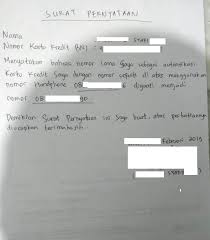 SURAT PERNYATAAN
Nama : STARI
Nomor Kartu Kredit (BNI) : 4
Menyatakan bahwa nomor lama saya sebagai autentikasi
Kartu Kredit saya dengan nomor seperti di atas menggunakan
nomor Handphone 08 6 diganti menjadi
nomor 08 90
Demikian Surat Pernyataan ini saya buat, atas perhatiannya
diucapkan terimakasih.
Februari 2015
STARI )